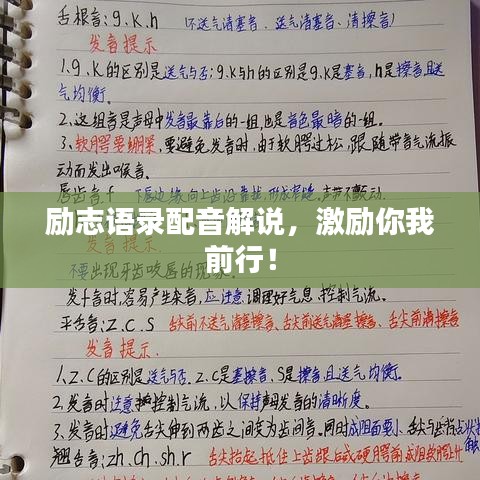 舌根音:g.k.h (不送气清塞音、送气清塞音、清擦音)
发音提示
1.g.k的区别是送气与否;g.k与h的区别是g.k是塞音,h是擦音,且送
气均衡.
2.这组音是声母中发音最靠后的一组,也是音色最暗的一组.
3.软腭要绷紧,要避免发音时,由于软腭过松,跟随带音气流振
动而发出喉音.
唇齿音.f 下唇边缘向上齿沿靠拢,形成窄缝,声带不颤动
励志语录配音解说，激励你我
前行！
不要出现牙齿咬唇的现象.
发f音时,容易产生杂音,应注意调理好气息.控制气流.
平舌音:z.c.s 舌尖前不送气清塞擦音、舌尖前送气清塞擦音、舌尖前清擦音
发音提示.
1.z.c的区别是送气与否.z.c是塞擦音,s是擦音且送气均衡.
2.发音时注意控制气流,以保持声母发音的清晰度。
3.发音时避免舌尖伸到两齿之间变为齿间音.同时成阻面要小,舌尖与齿背点状接触
翘舌音:zh.ch.sh.r 舌尖抬起抵住上齿龈后或硬腭前成阻软腭上升